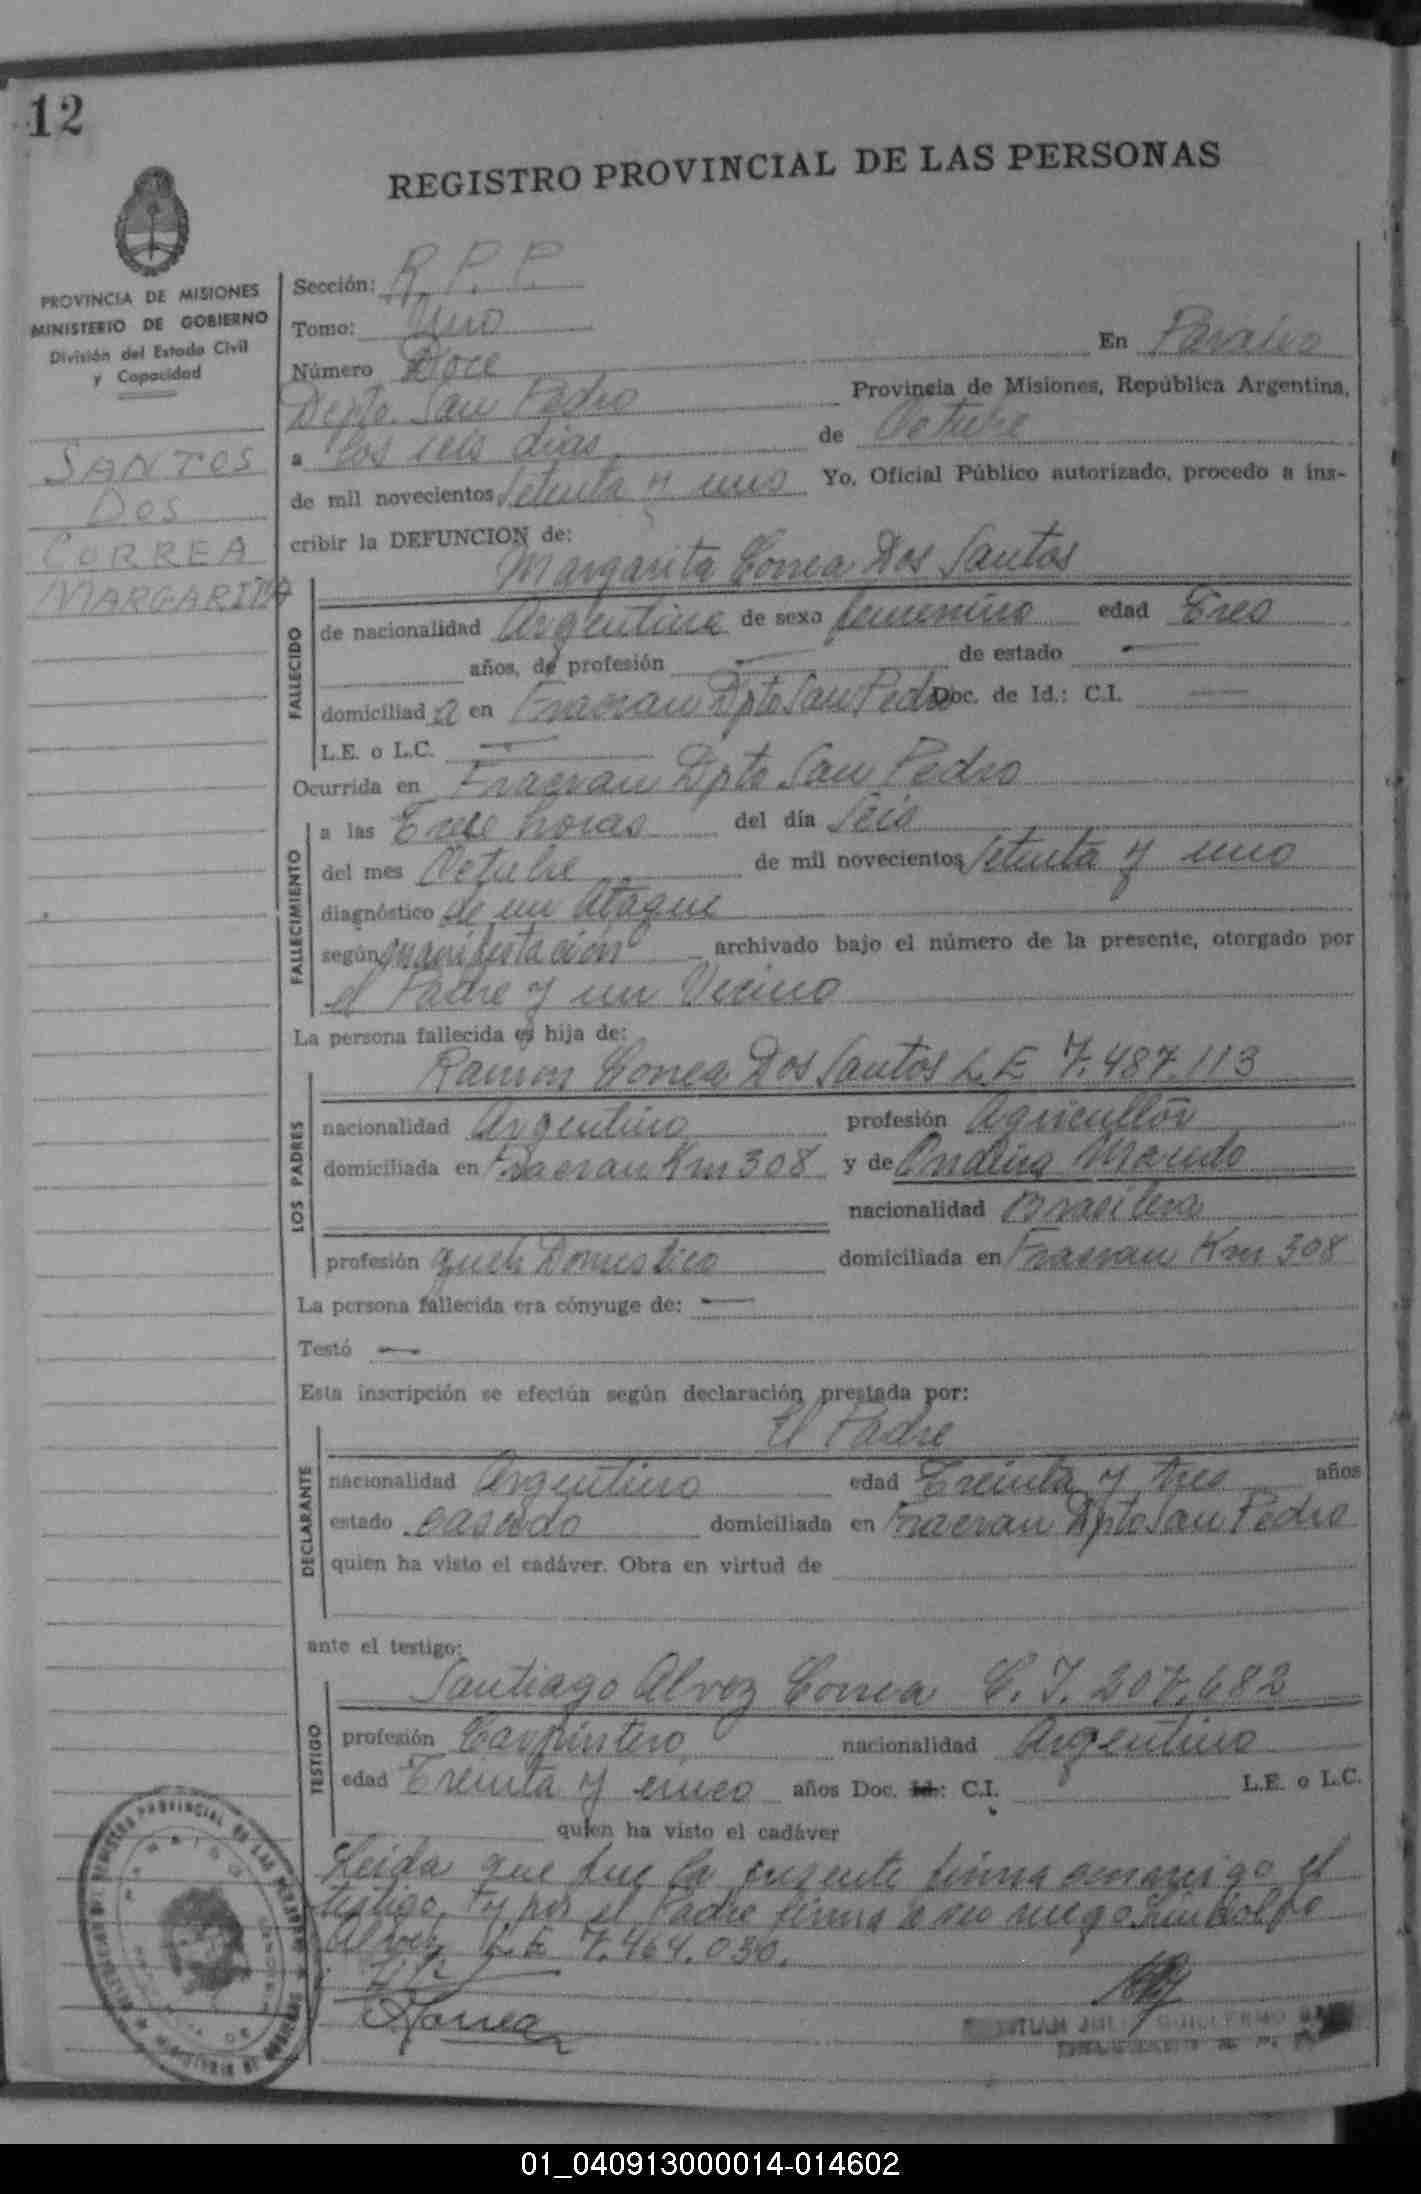 12
REGISTRO PROVINCIAL DE LAS PERSONAS
PROVINCIA DE MISIONES
MINISTERIO DE GOBIERNO
División del Estado Civil
y Capacidad
SANTOS
DOS
CORREA
MARGARITA
Sección: R. P. P.
Tomo: Uno
En Paraíso
Número Doce
Dpto. San Pedro Provincia de Misiones, República Argentina,
a los seis dias de Octubre
de mil novecientos setenta y uno Yo, Oficial Público autorizado, procedo a ins-
cribir la DEFUNCION de:
Margarita Correa Dos Santos
FALLECIDO
de nacionalidad Argentina de sexo femenino edad Tres
años, de profesión — de estado —
domiciliad a en Fracran Dpto San Pedro Doc. de Id.: C.I. —
L.E. o L.C. —
Ocurrida en Fracran Dpto San Pedro
FALLECIMIENTO
a las Trece horas del día Seis
del mes Octubre de mil novecientos setenta y uno
diagnóstico de un Ataque
según manifestación archivado bajo el número de la presente, otorgado por
el Padre y un Vecino
La persona fallecida es hija de:
Ramon Correa Dos Santos L.E 7.487.113
LOS PADRES
nacionalidad Argentino profesión Agricultor
domiciliada en Fracran Km 308 y de Ondina
nacionalidad Brasilera
profesión Domestico domiciliada en Fracran Km 308
La persona fallecida era cónyuge de: —
Testó —
Esta inscripción se efectúa según declaración prestada por:
El Padre
DECLARANTE
nacionalidad Argentino edad Treinta y tres años
estado casado domiciliada en Fracran Dpto San Pedro
quien ha visto el cadáver. Obra en virtud de
ante el testigo:
Santiago Alvez Correa C.I. 207.682
TESTIGO
profesión Carpintero nacionalidad Argentino
edad Treinta y cinco años Doc. Id.: C.I. L.E. o L.C.
quien ha visto el cadáver
Leida que fue la presente firma conmigo el
testigo, y por el Padre firma a su ruego Lindolfo
Alvez L.E 7.464.030.
Correa
REGISTRO PROVINCIAL DE LAS PERSONAS
01_040913000014-014602